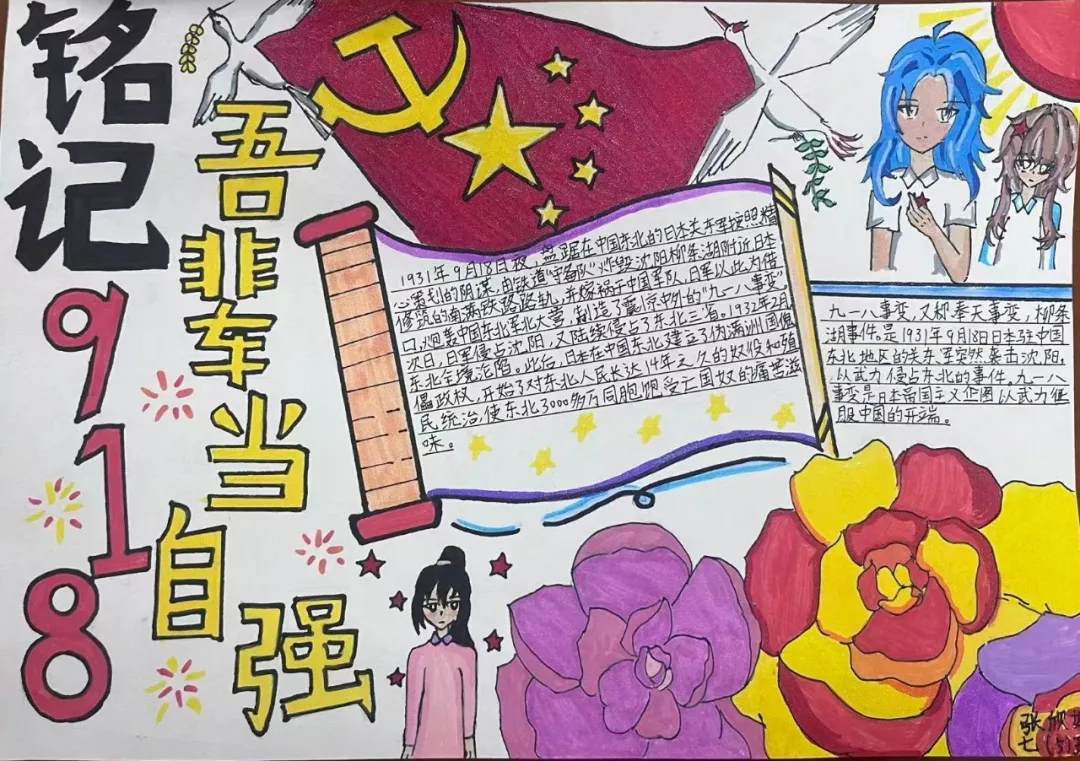 铭记918
吾非车当自强
1931年9月18日夜,盘踞在中国东北的日本关东军按照精
心策划的阴谋,由铁道"守备队"炸毁沈阳柳条湖附近日本
修筑的南满铁路路轨,并嫁祸于中国军队,日军以此为借
口,炮轰中国东北军北大营,制造了震惊中外的"九一八事变"
次日,日军侵占沈阳,又陆续侵占了东北三省。1932年2月
东北全境沦陷。此后,日本在中国东北建立了伪满洲国傀
儡政权,开始了对东北人民长达14年之久的奴役和殖
民统治,使东北3000多万同胞饱受亡国奴的痛苦滋
味。
九一八事变,又称奉天事变,柳条
湖事件。是1931年9月18日日本驻中国
东北地区的关东军突然袭击沈阳,
以武力侵占东北的事件。九一八
事变是日本帝国主义企图以武力征
服中国的开端。
张欣
七(5)